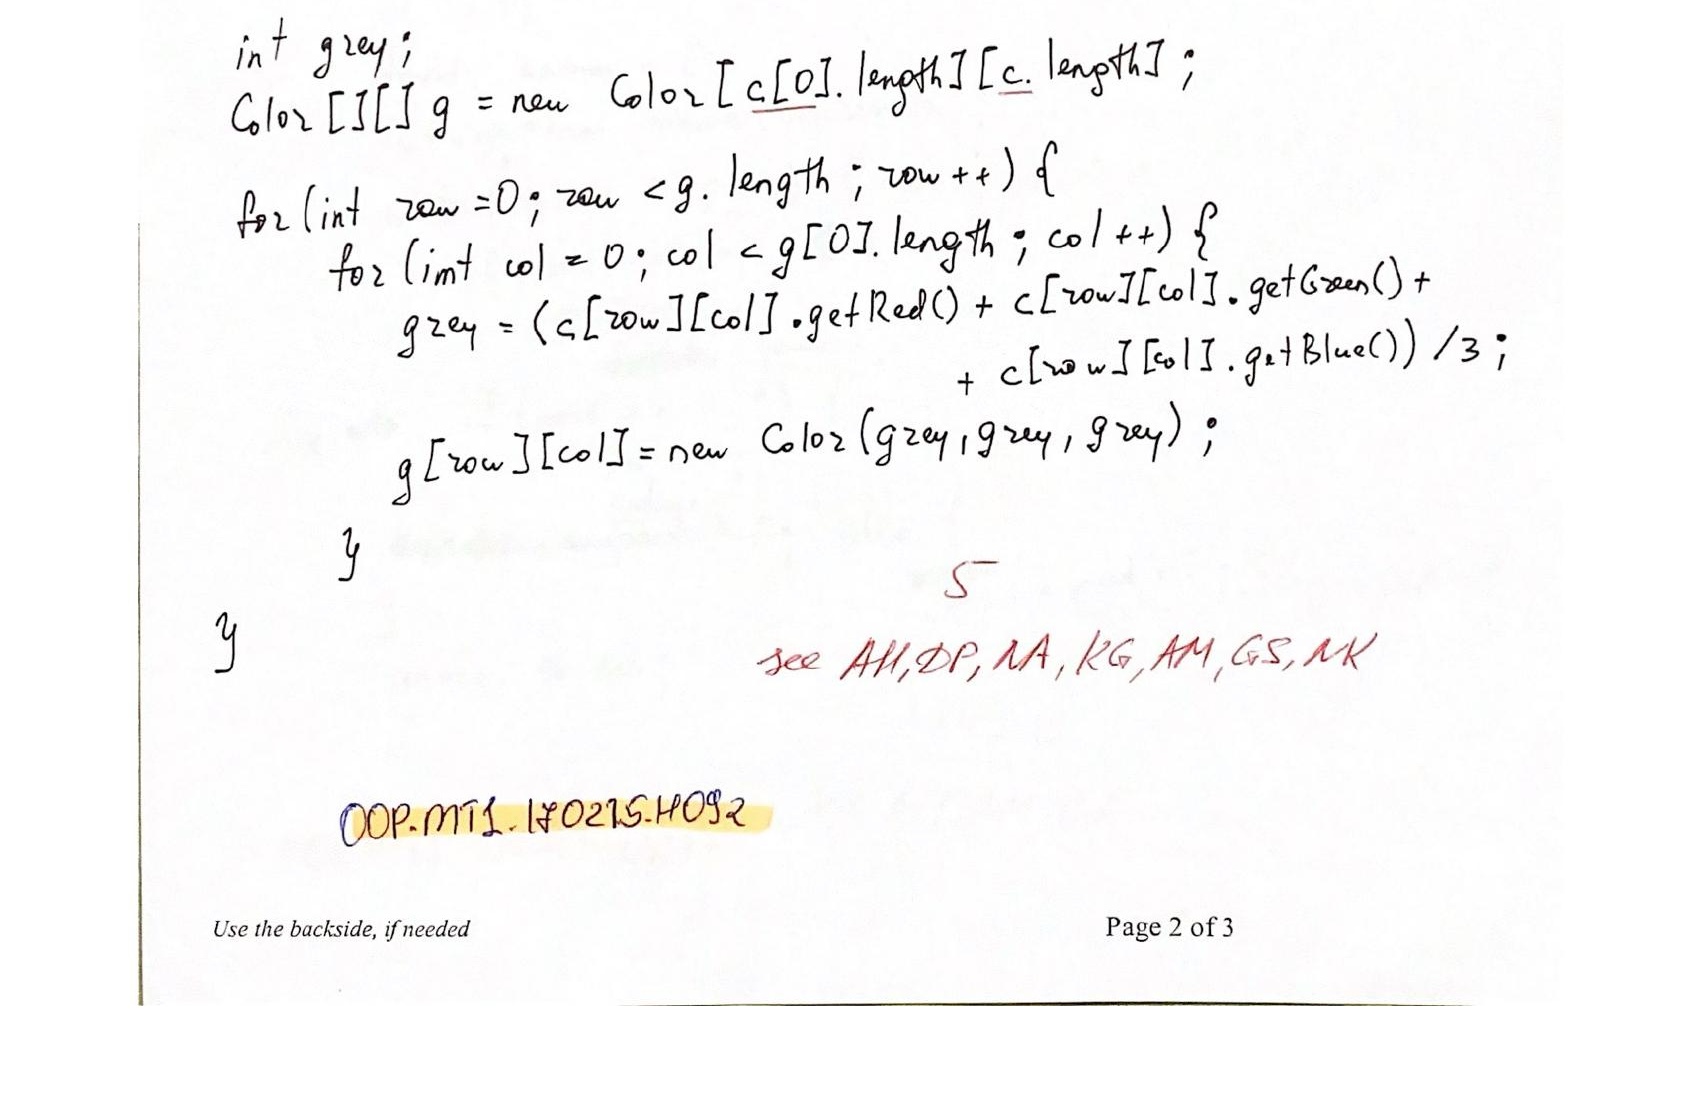 int grey;
Color[][] g = new Color[c[0].length][c.length];
for(int row=0; row <g.length; row++) {
for(int col = 0; col < g[0].length; col++) {
grey = (c[row][col].getRed() + c[row][col].getGreen() +
+ c[row][col].getBlue()) /3;
g[row][col] = new Color(grey,grey,grey);
}
}
5
see AH, DP, NA, KG, AM, GS, NK
OOP.MT1.170215.H092
Use the backside, if needed
Page 2 of 3